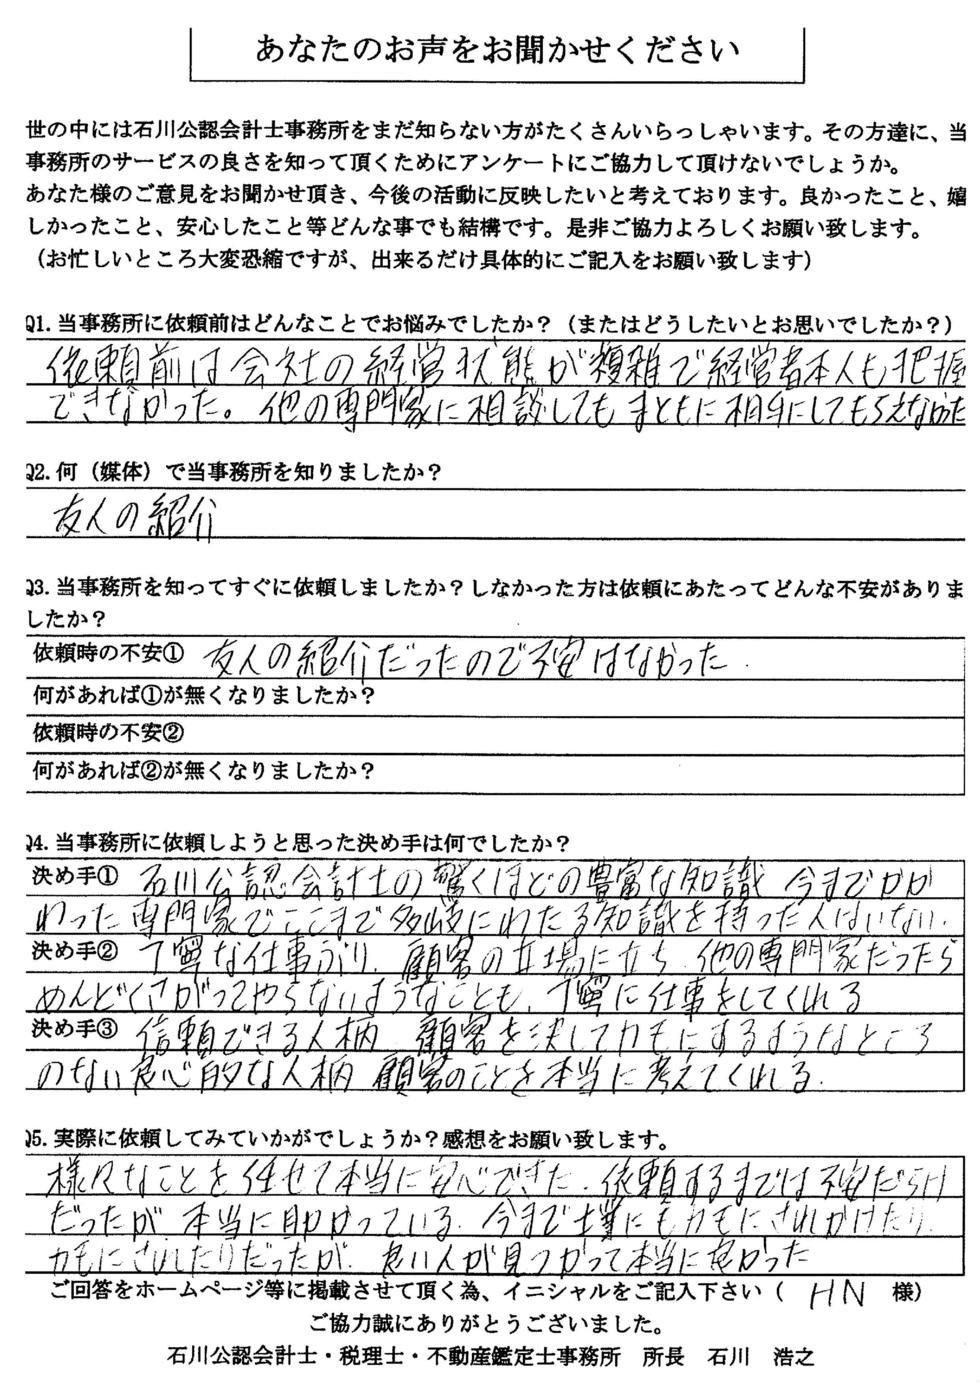 あなたのお声をお聞かせください
世の中には石川公認会計士事務所をまだ知らない方がたくさんいらっしゃいます。その方達に、当
事務所のサービスの良さを知って頂くためにアンケートにご協力して頂けないでしょうか。
あなた様のご意見をお聞かせ頂き、今後の活動に反映したいと考えております。良かったこと、嬉
しかったこと、安心したこと等どんな事でも結構です。是非ご協力よろしくお願い致します。
（お忙しいところ大変恐縮ですが、出来るだけ具体的にご記入をお願い致します）
Q1.当事務所に依頼前はどんなことでお悩みでしたか？（またはどうしたいとお思いでしたか？）
依頼前は会社の経営状態が複雑で経営者本人も把握
できなかった。他の専門家に相談してもまともに相手にしてもらえなかった
Q2.何（媒体）で当事務所を知りましたか？
友人の紹介
Q3.当事務所を知ってすぐに依頼しましたか？しなかった方は依頼にあたってどんな不安がありま
したか？
依頼時の不安① 友人の紹介だったので不安はなかった.
何があれば①が無くなりましたか？
依頼時の不安②
何があれば②が無くなりましたか？
Q4.当事務所に依頼しようと思った決め手は何でしたか？
決め手① 石川公認会計士の驚くほどの豊富な知識 今までかか
わった専門家でここまで多岐にわたる知識を持った人はいない.
決め手② 丁寧な仕事ぶり. 顧客の立場に立ち 他の専門家だったら
めんどくさがってやらないようなことも、丁寧に仕事をしてくれる
決め手③ 信頼できる人柄 顧客を決してカモにするようなところ
のない良心的な人柄 顧客のことを本当に考えてくれる.
Q5.実際に依頼してみていかがでしょうか？感想をお願い致します。
様々なことを任せて本当に安心できた. 依頼するまでは不安だらけ
だったが 本当に助かっている. 今まで士業にもカモにされかけたり.
カモにされたりだったが、良い人が見つかって本当に良かった
ご回答をホームページ等に掲載させて頂く為、イニシャルをご記入下さい（ HN 様）
ご協力誠にありがとうございました。
石川公認会計士・税理士・不動産鑑定士事務所 所長 石川 浩之